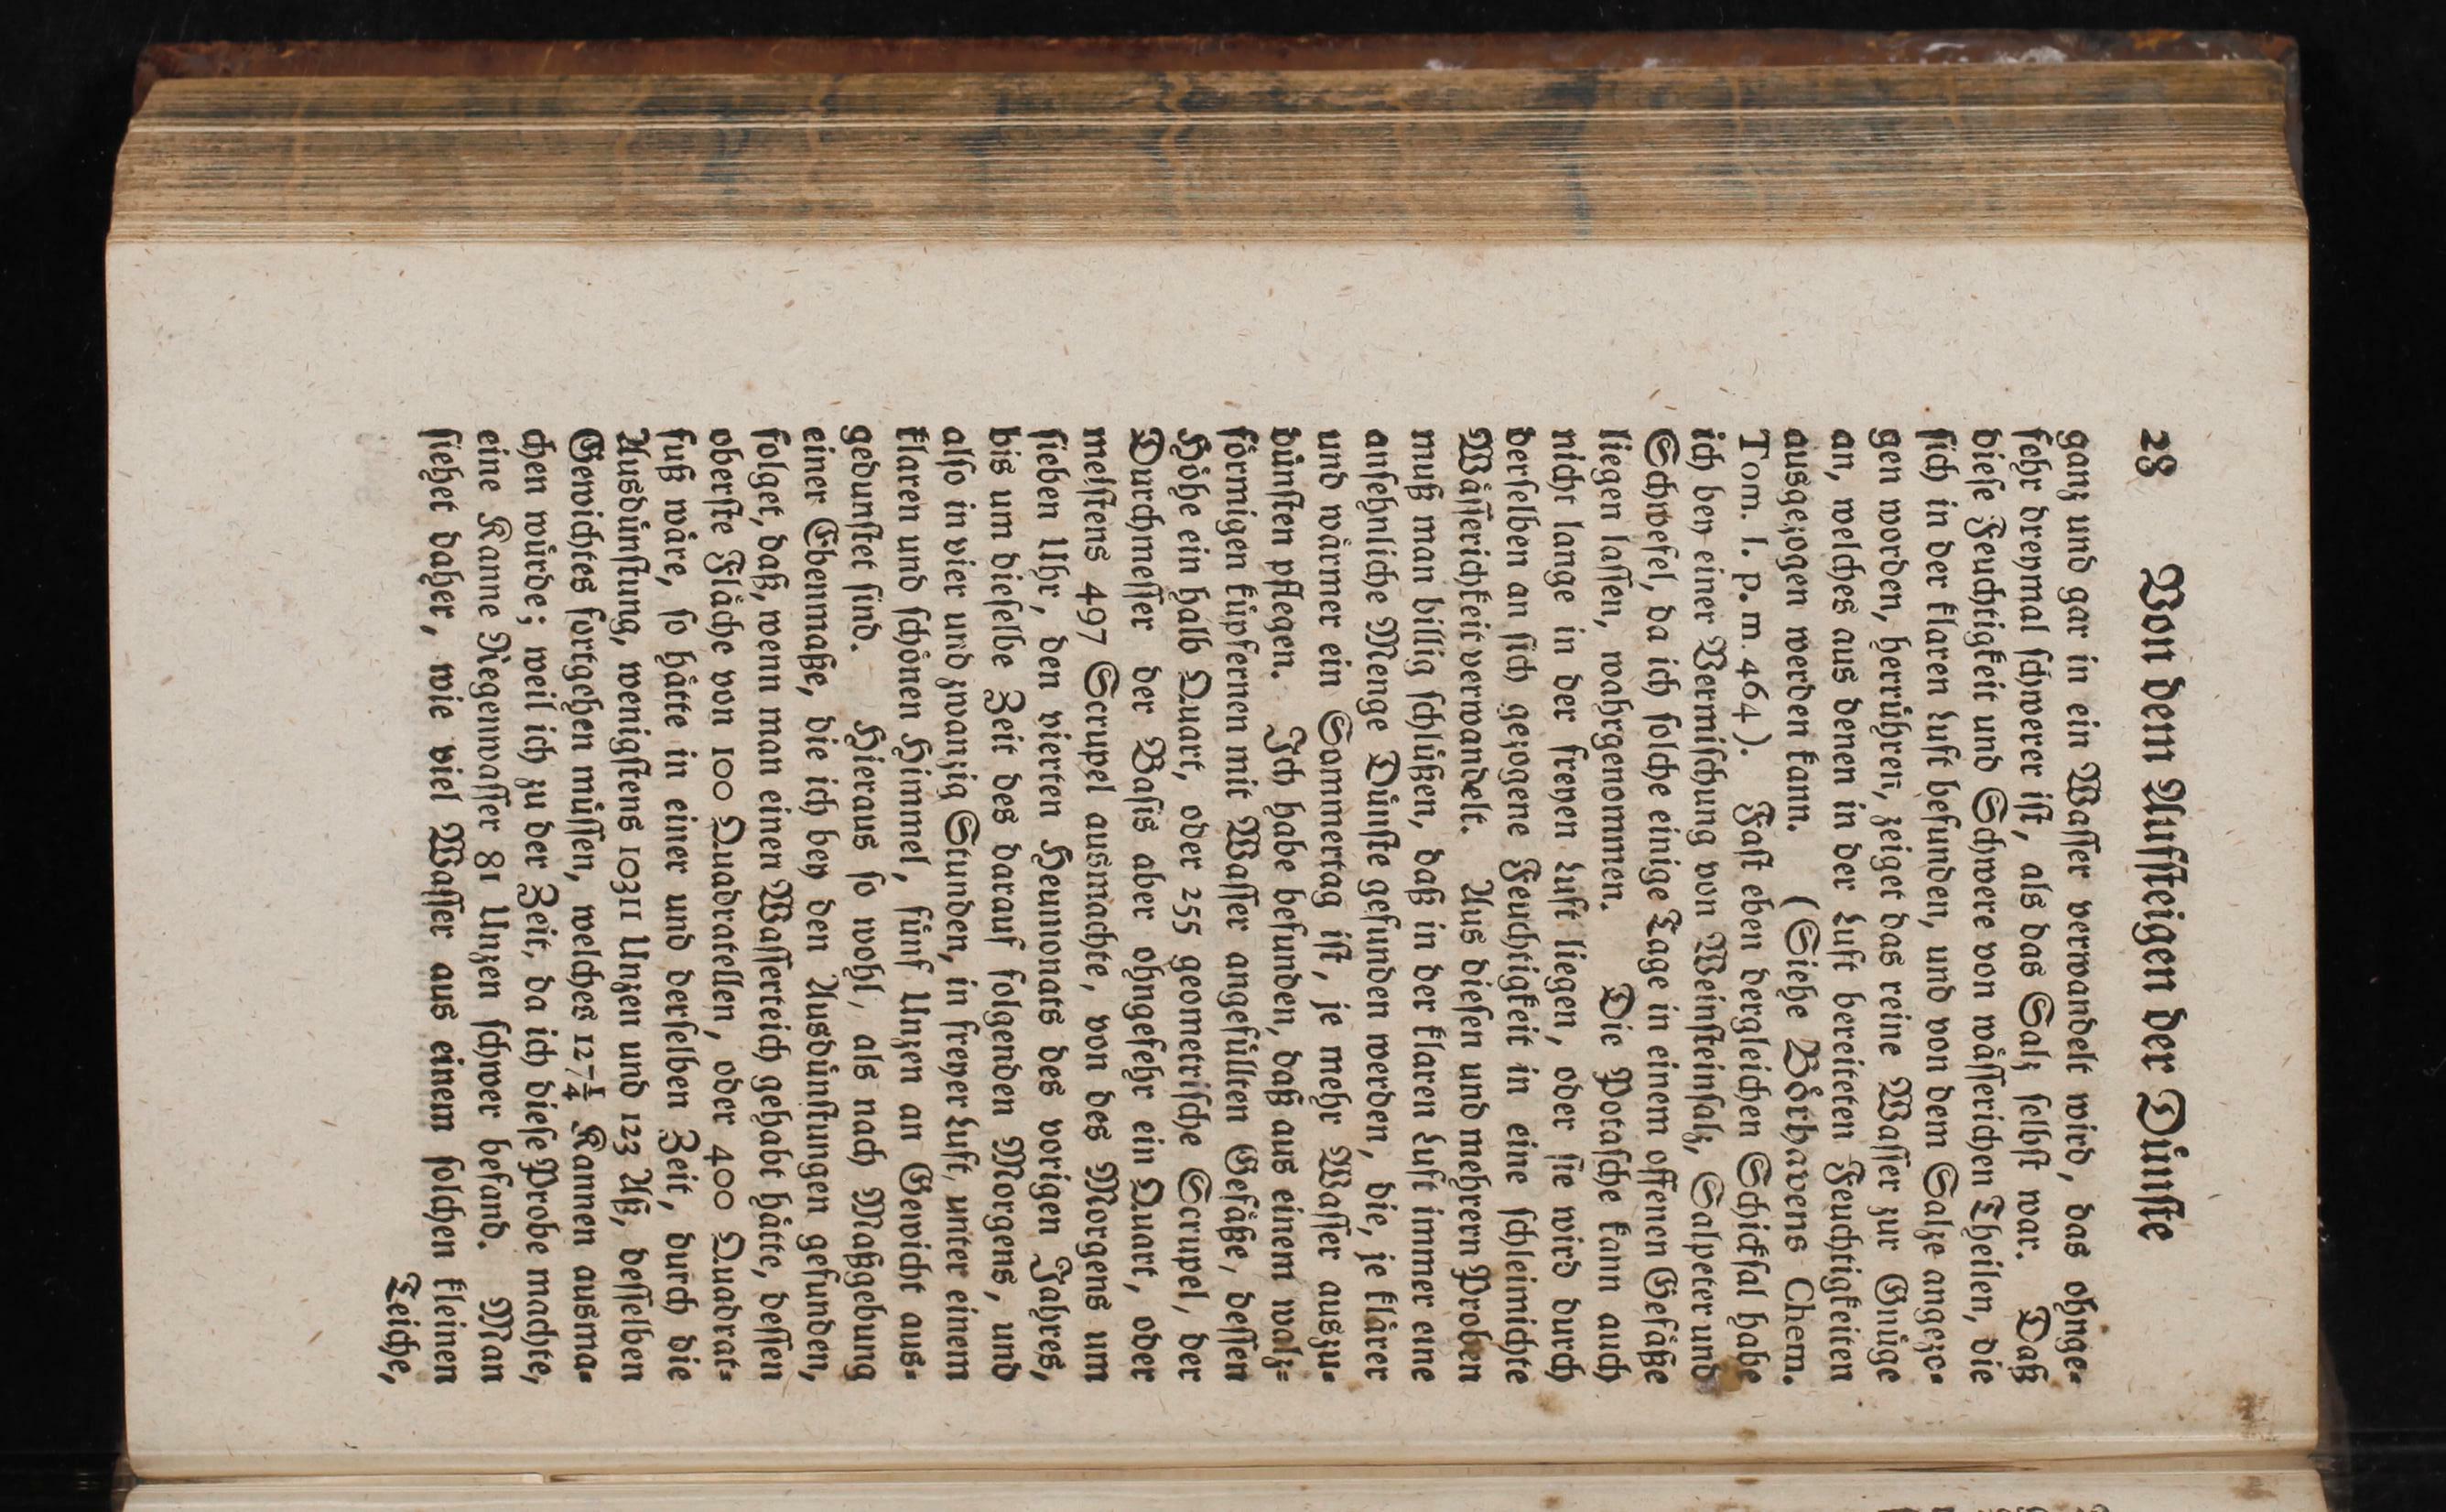 28 Von dem Aufſteigen der Dünſte
ganz und gar in ein Waſſer verwandelt wird, das ohnge-
fehr dreymal ſchwerer iſt, als das Salz ſelbſt war. Daß
dieſe Feuchtigkeit und Schwere von wäſſerichen Theilen, die
ſich in der klaren Luft befunden, und von dem Salze angezo-
gen worden, herrühren, zeiget das reine Waſſer zur Gnüge
an, welches aus denen in der Luft bereiteten Feuchtigkeiten
ausgezogen werden kann. (Siehe Börhavens Chem.
Tom. I. p. m. 464). Faſt eben dergleichen Schickſal habe
ich bey einer Vermiſchung von Weinſteinſalz, Salpeter und
Schwefel, da ich ſolche einige Tage in einem offenen Gefäße
liegen laſſen, wahrgenommen. Die Potaſche kann auch
nicht lange in der freyen Luft liegen, oder ſie wird durch
derſelben an ſich gezogene Feuchtigkeit in eine ſchleimichte
Wäſſerichkeit verwandelt. Aus dieſen und mehrern Proben
muß man billig ſchlüßen, daß in der klaren Luft immer eine
anſehnliche Menge Dünſte gefunden werden, die, je klärer
und wärmer ein Sommertag iſt, je mehr Waſſer auszu-
dünſten pflegen. Ich habe befunden, daß aus einem walz-
förmigen küpfernen mit Waſſer angefüllten Gefäße, deſſen
Höhe ein halb Quart, oder 255 geometriſche Scrupel, der
Durchmeſſer der Baſis aber ohngefehr ein Quart, oder
meiſtens 497 Scrupel ausmachte, von des Morgens um
ſieben Uhr, den vierten Heumonats des vorigen Jahres,
bis um dieſelbe Zeit des darauf folgenden Morgens, und
alſo in vier und zwanzig Stunden, in freyer Luft, unter einem
klaren und ſchönen Himmel, fünf Unzen an Gewicht aus-
gedunſtet ſind. Hieraus ſo wohl, als nach Maßgebung
einer Ebenmaße, die ich bey den Ausdünſtungen gefunden,
folget, daß, wenn man einen Waſſerteich gehabt hätte, deſſen
oberſte Fläche von 100 Quadratellen, oder 400 Quadrat-
fuß wäre, ſo hätte in einer und derſelben Zeit, durch die
Ausdünſtung, wenigſtens 10311 Unzen und 123 Aß, deſſelben
Gewichtes fortgehen müſſen, welches 127¼ Kannen ausma-
chen würde; weil ich zu der Zeit, da ich dieſe Probe machte,
eine Kanne Regenwaſſer 81 Unzen ſchwer befand. Man
ſiehet daher, wie viel Waſſer aus einem ſolchen kleinen
Teiche,